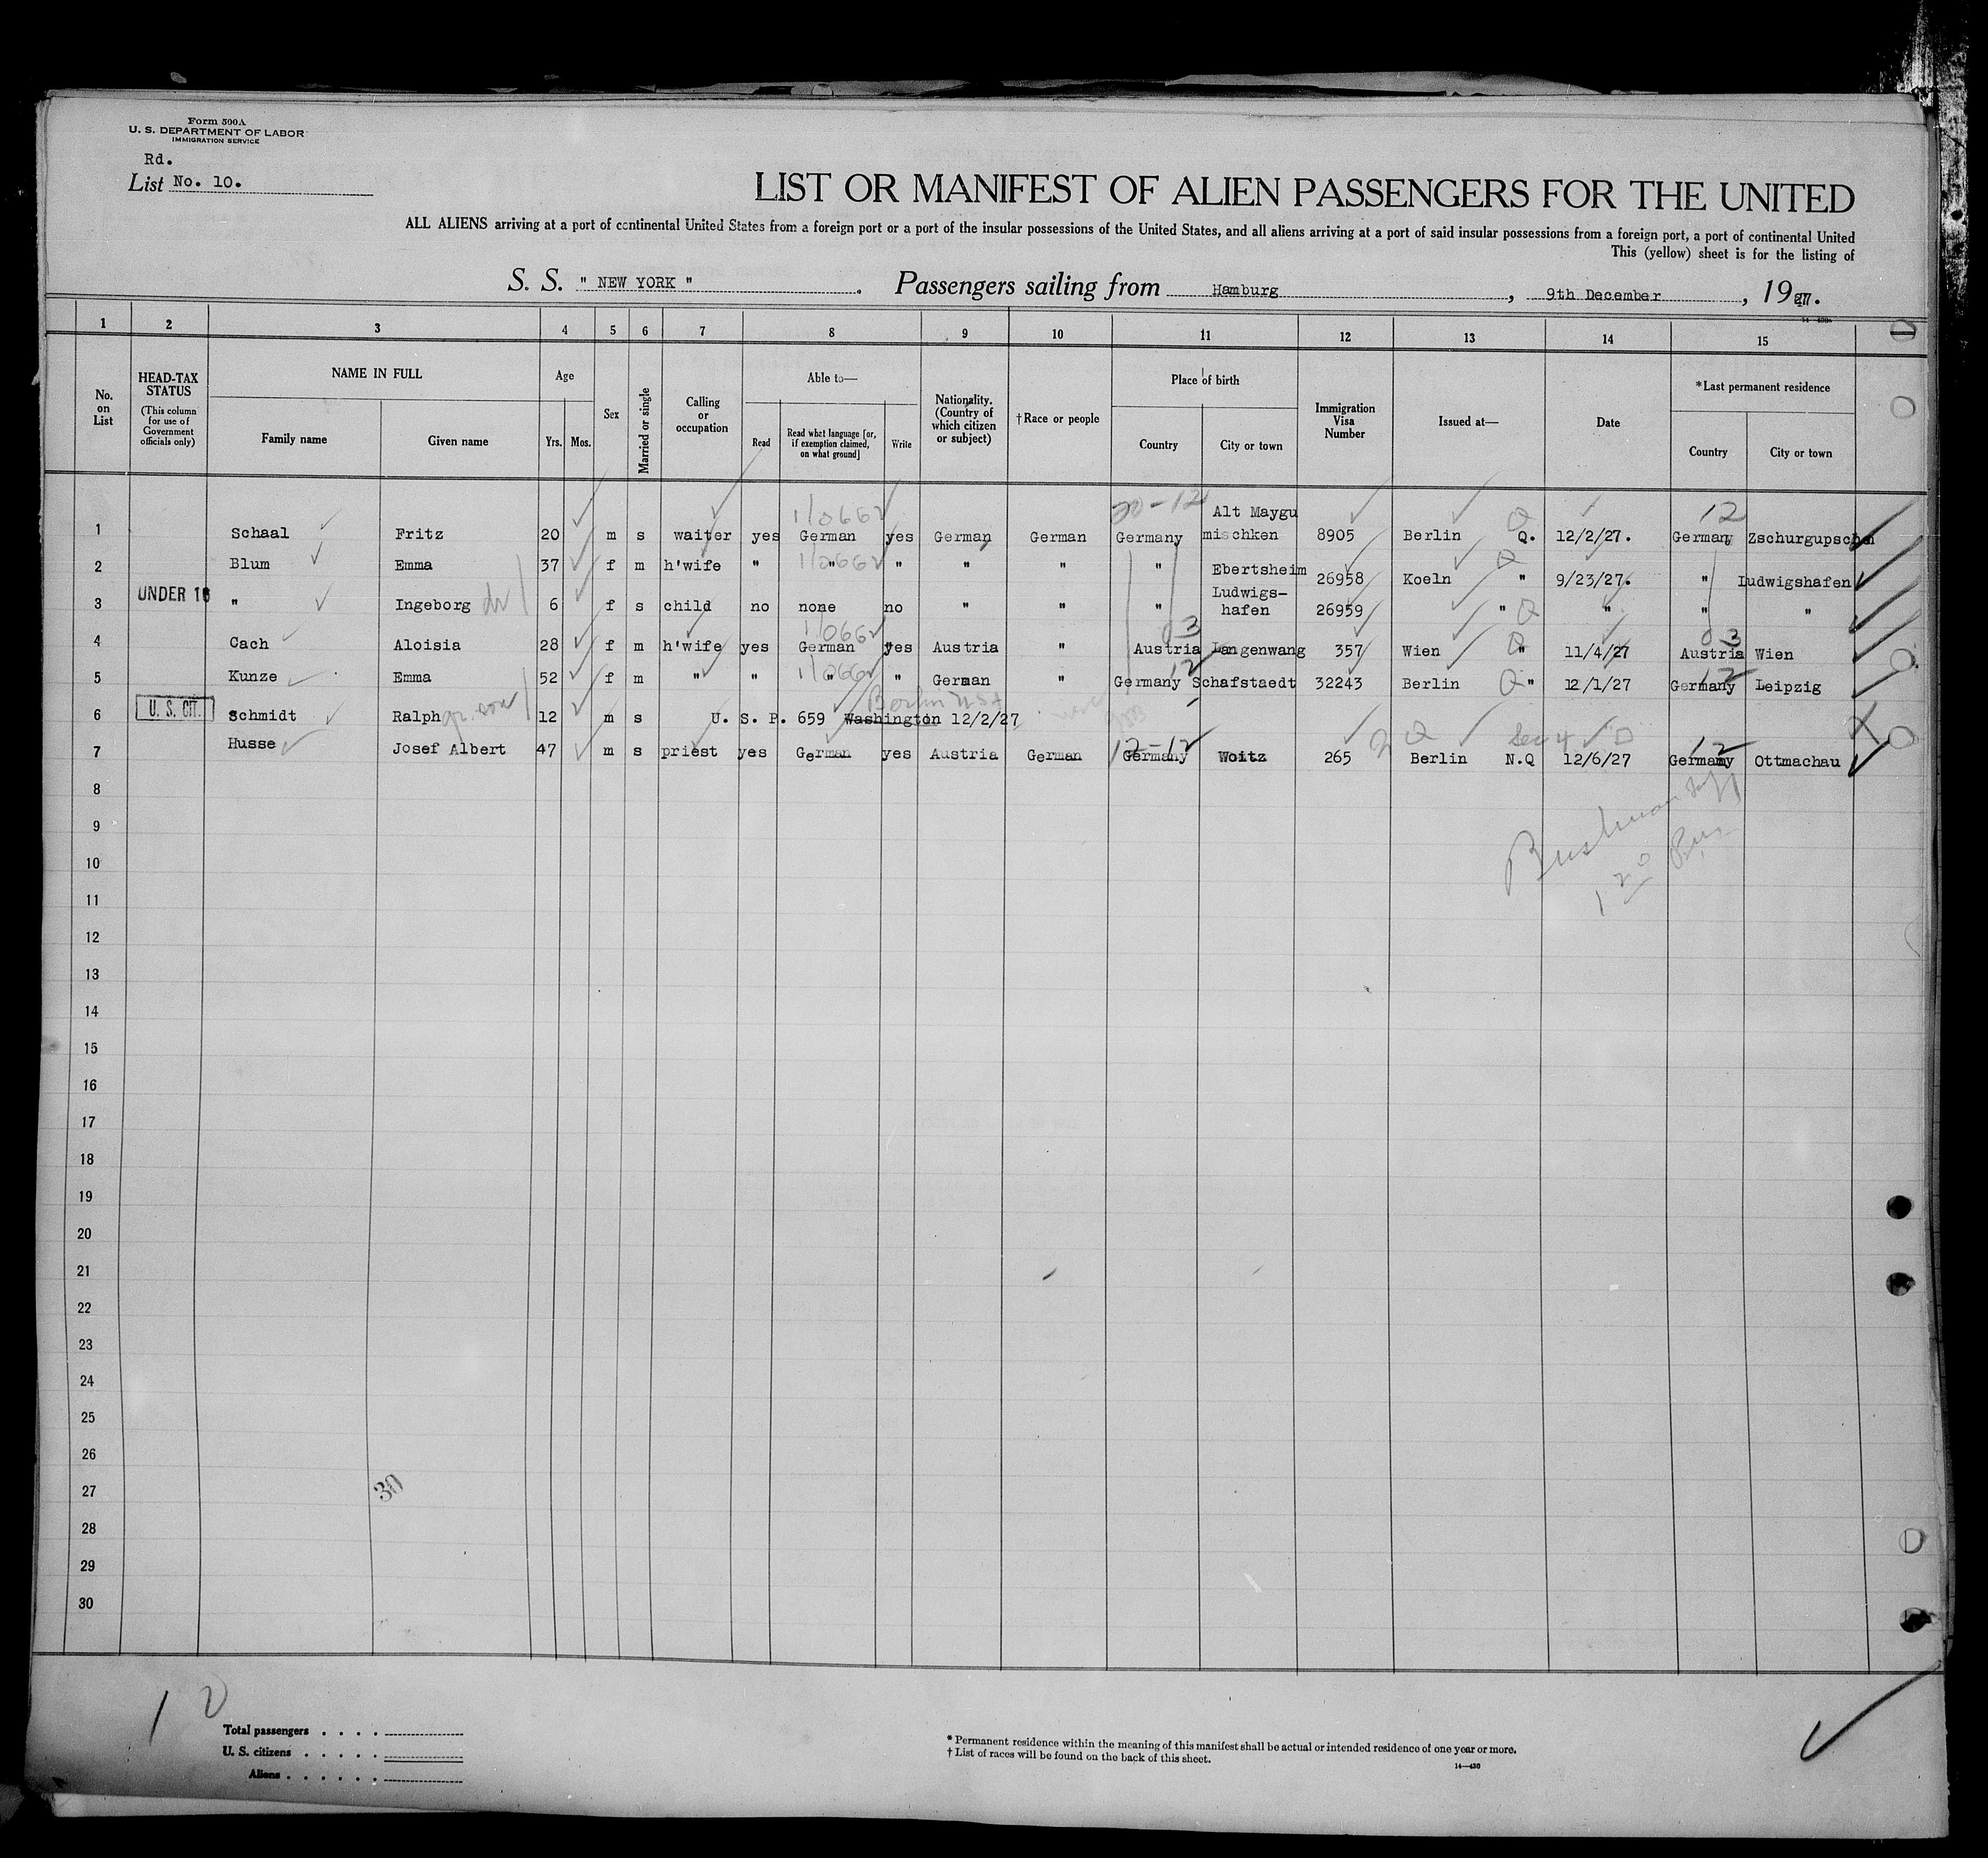 Form 500A
U. S. DEPARTMENT OF LABOR
IMMIGRATION SERVICE
Rd.
List No. 10.
LIST OR MANIFEST OF ALIEN PASSENGERS FOR THE UNITED
ALL ALIENS arriving at a port of continental United States from a foreign port or a port of the insular possessions of the United States, and all aliens arriving at a port of said insular possessions from a foreign port, a port of continental United
This (yellow) sheet is for the listing of
S. S. " NEW YORK " . Passengers sailing from Hamburg , 9th December , 1927.
1 2 3 4 5 6 7 8 9 10 11 12 13 14 15
No. on List
HEAD-TAX STATUS (This column for use of Government officials only)
NAME IN FULL
Family name Given name
Age
Yrs. Mos.
Sex
Married or single
Calling or occupation
Able to—
Read Read what language [or, if exemption claimed, on what ground] Write
Nationality. (Country of which citizen or subject)
†Race or people
Place of birth
Country City or town
Immigration Visa Number
Issued at—
Date
*Last permanent residence
Country City or town
20-12 12
1 Schaal Fritz 20 m s waiter yes German yes German German Germany Alt Maygu mischken 8905 Berlin Q. 12/2/27. Germany Zschurgupschen
2 Blum Emma 37 f m h'wife " " " " " " Ebertsheim 26958 Koeln " 9/23/27. " Ludwigshafen
UNDER 16
3 " Ingeborg 6 f s child no none no " " " Ludwigs- hafen 26959 " " " "
03 03
4 Cach Aloisia 28 f m h'wife yes German yes Austria " Austria Langenwang 357 Wien " 11/4/27 Austria Wien
12 12
5 Kunze Emma 52 f m " " " " German " Germany Schafstaedt 32243 Berlin " 12/1/27 Germany Leipzig
U. S. CIT.
Berlin
6 Schmidt Ralph gr. son 12 m s U. S. P. 659 Washington 12/2/27
12-12 Sec 4 12
7 Husse Josef Albert 47 m s priest yes German yes Austria German Germany Woitz 265 Berlin N.Q 12/6/27 Germany Ottmachau
8
9
10
11
12
13
14
15
16
17
18
19
20
21
22
23
24
25
26
27
28
29
30
30
Total passengers . . . .
U. S. citizens . . . . .
Aliens . . . . . .
* Permanent residence within the meaning of this manifest shall be actual or intended residence of one year or more.
† List of races will be found on the back of this sheet.
14—430